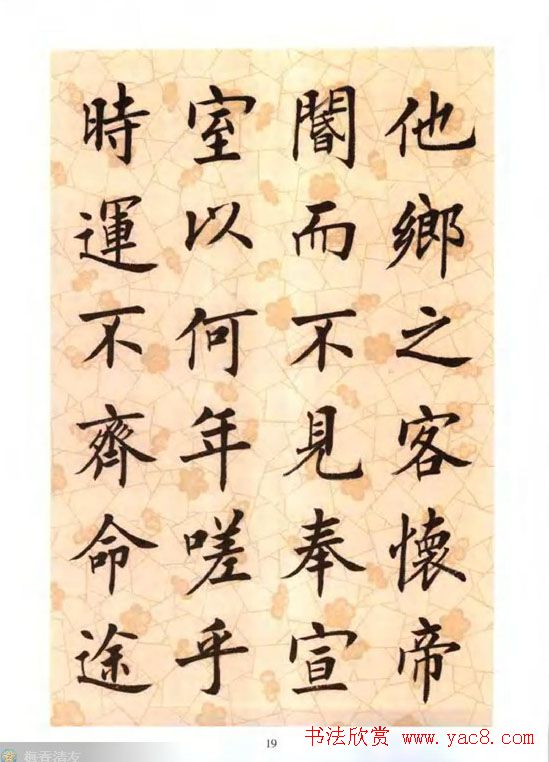 他鄉之客懷帝
閽而不見奉宣
室以何年嗟乎
時運不齊命途
19
书法欣赏 www.yac8.com